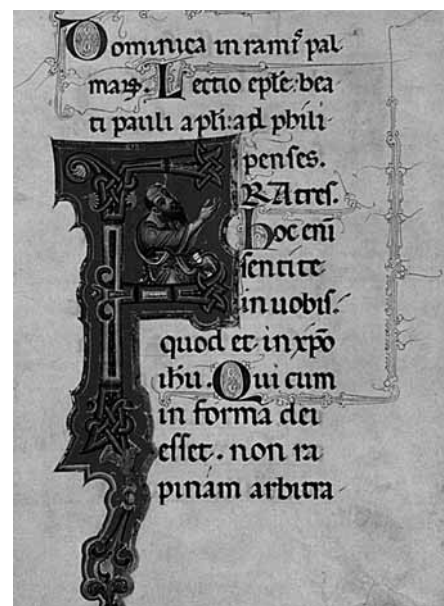 Dominica in ramis pal
marꝝ. Lectio eptle bea
ti pauli apli: ad phili
penses.
FRAtres.
hoc eni
sentite
in uobis.
quod et in xpo
ihu. Qui cum
in forma dei
esset. non ra
pinam arbitra